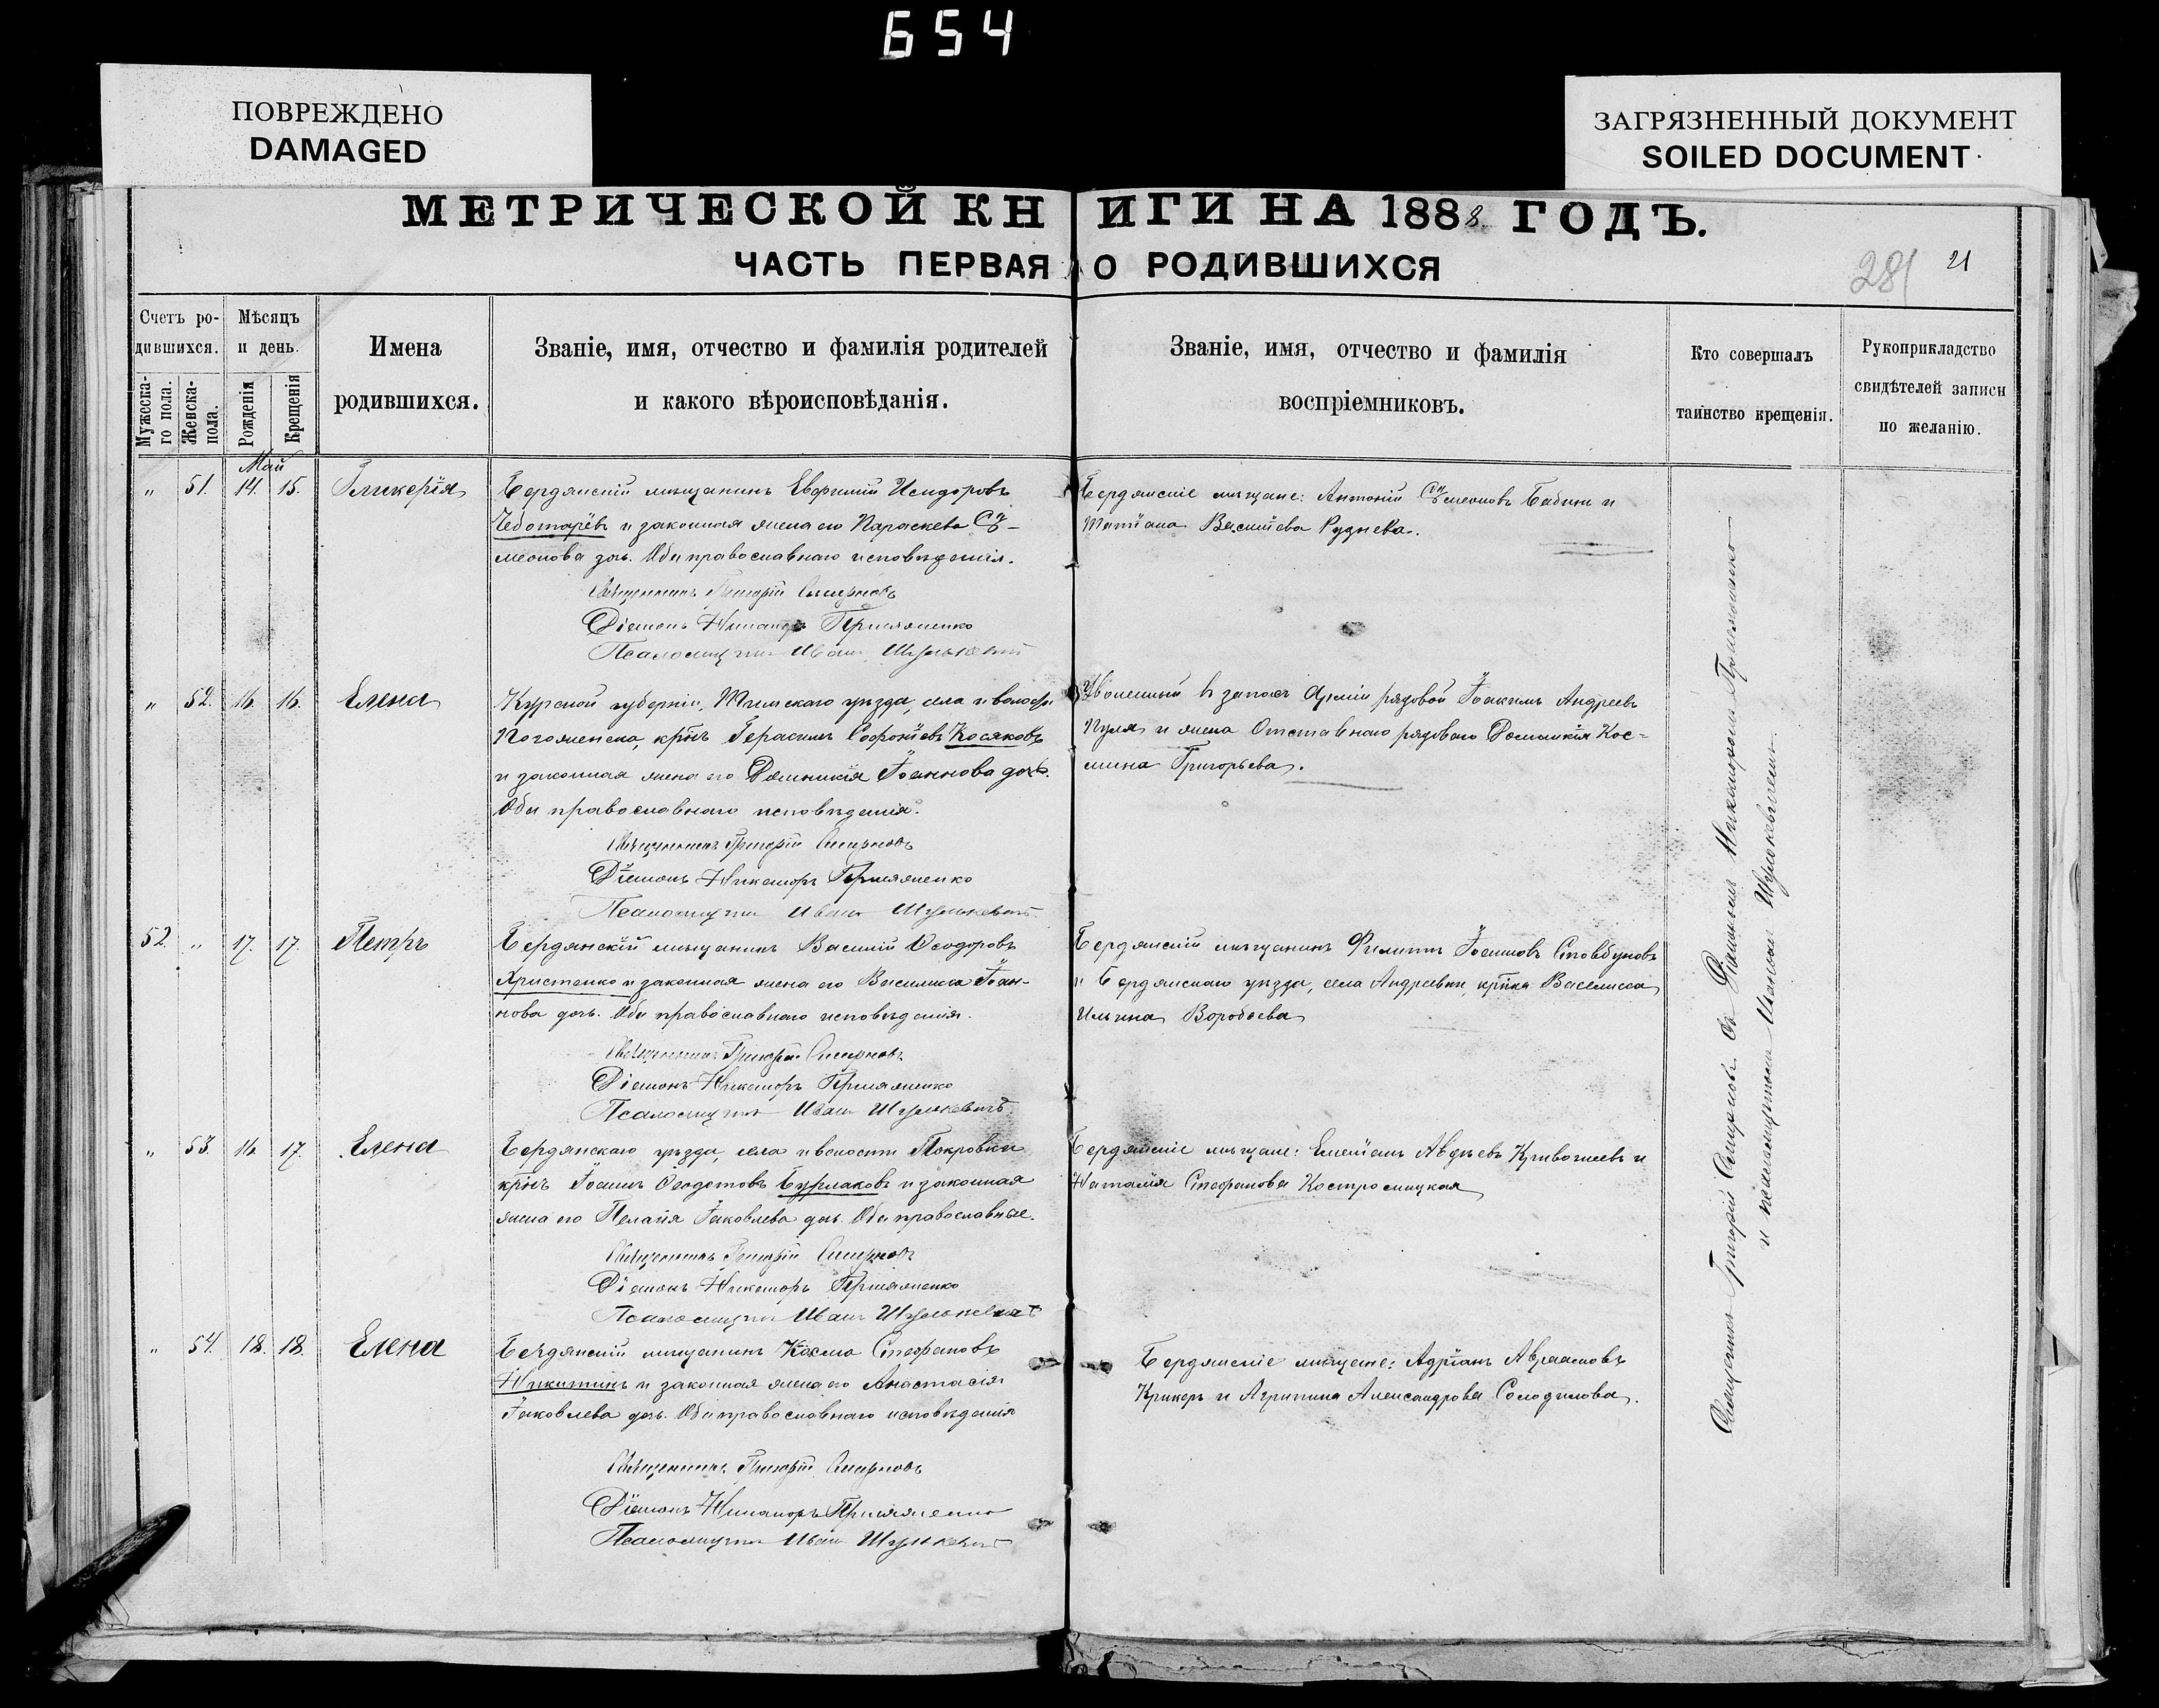 654
ПОВРЕЖДЕНО
DAMAGED
ЗАГРЯЗНЕННЫЙ ДОКУМЕНТ
SOILED DOCUMENT
МЕТРИЧЕСКОЙ КНИГИ НА 1888 ГОДЪ.
ЧАСТЬ ПЕРВАЯ О РОДИВШИХСЯ
281 21
Счетъ ро-
дившихся.
Мужеска-
го пола.
Женска-
пола.
Мѣсяцъ
и день.
Рожденія
Крещенія
Имена
родившихся.
Званіе, имя, отчество и фамилія родителей
и какого вѣроисповѣданія.
Званіе, имя, отчество и фамилія
воспріемниковъ.
Кто совершалъ
таинство крещенія.
Рукоприкладство
свидѣтелей записи
по желанію.
Май
" 51. 14. 15. Гликерія
Бердянскій мѣщанинъ Евфимій Исидоровъ
Чеботарёвъ и законная жена его Параскева Сѵ-
меонова дочь. Оба православнаго исповѣданія.
Священникъ Григорій Смирновъ
Діаконъ Никаноръ Прилоненко
Псаломщикъ Иванъ Шулькевичъ
Бердянскіе мѣщане: Антоній Сѵмеоновъ Бабин и
Татіана Васильева Руднева.
" 52. 16. 16. Елена
Курской губерніи, Тимскаго уѣзда, села и волости
Погоженска, кр̃нъ Герасимъ Софоніевъ Косяковъ
и законная жена его Домникія Іоаннова дочь.
Оба православнаго исповѣданія.
Священникъ Григорій Смирновъ
Діаконъ Никаноръ
Псаломщикъ Иванъ Шулькевичъ
Уволенный въ запасъ Арміи рядовой Іоакимъ Андреевъ
Пуля и жена Отставнаго рядоваго Домникія Кос-
мина Григорьева.
52. " 17. 17. Петръ
Бердянскій мѣщанинъ Василій Ѳеодоровъ
Христенко и законная жена его Василисса Іоан-
нова дочь. Оба православнаго исповѣданія.
Священникъ Григорій Смирновъ
Діаконъ Никаноръ
Псаломщикъ Иванъ Шулькевичъ
Бердянскій мѣщанинъ Филиппъ Іоанновъ Столбуновъ
и Бердянскаго уѣзда, села Андреевки, кр̃нка Василисса
Ильина Воробьева
" 53. 16. 17. Елена
Бердянскаго уѣзда, села и волости Покровки
кр̃нъ Іоаннъ Ѳеодотовъ Бурлаковъ и законная
жена его Пелагія Іаковлева дочь. Оба православные.
Священникъ Григорій Смирновъ
Діаконъ Никаноръ
Псаломщикъ Иванъ Шулькевичъ
Бердянскіе мѣщане: Емеліанъ Авдѣевъ и
Наталія Стефанова Костромицкая
" 54. 18. 18. Елена
Бердянскій мѣщанинъ Косма Стефановъ
Никитинъ и законная жена его Анастасія
Іаковлева дочь. Оба православнаго исповѣданія
Священникъ Григорій Смирновъ
Діаконъ Никаноръ
Псаломщикъ Иванъ Шулькевичъ
Бердянскіе мѣщане: Адріанъ Авраамовъ
Крикеръ и Агрипина Александрова Солодилова.
Священникъ Григорій Смирновъ съ Діакономъ Никаноромъ
и псаломщикомъ Иваномъ Шулькевичемъ.